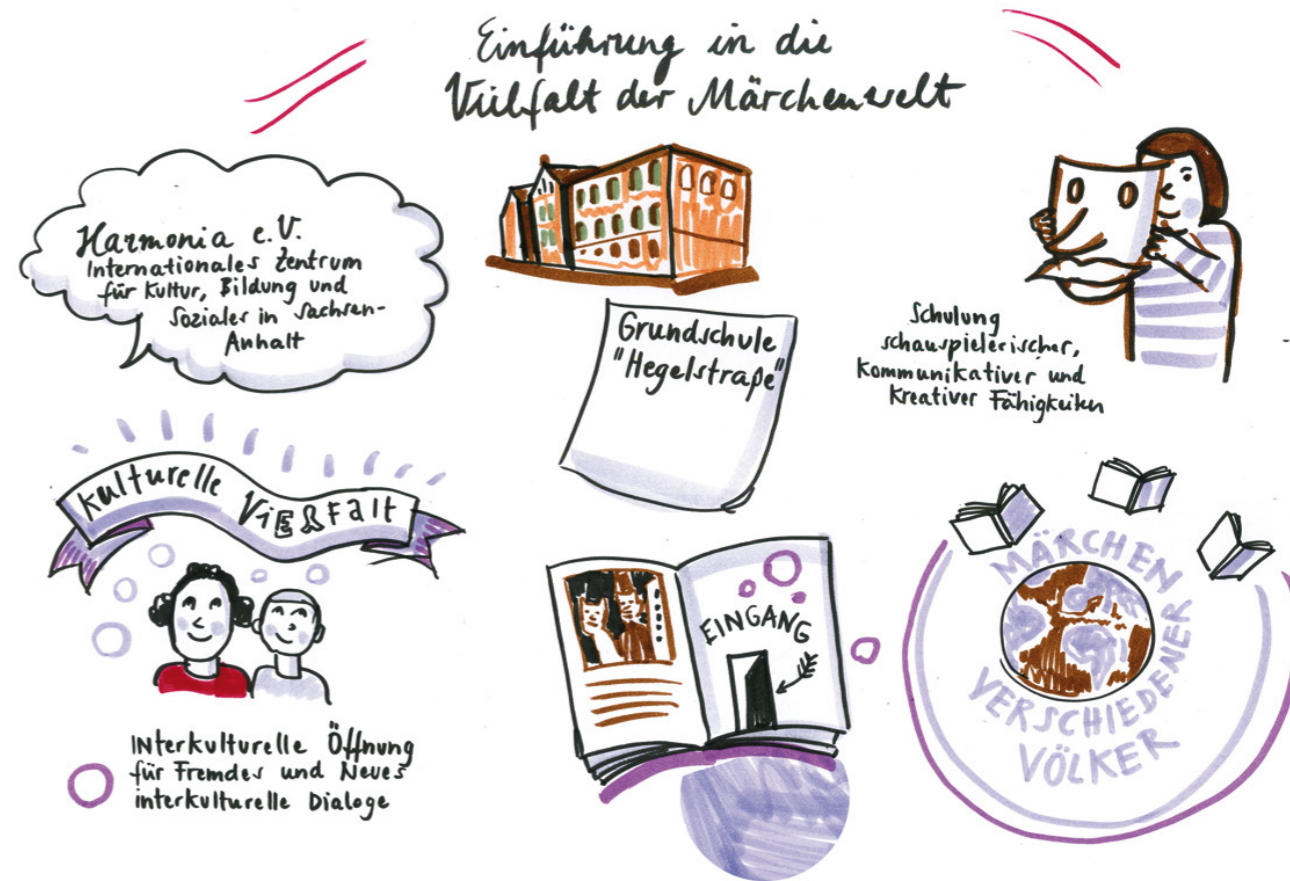 Einführung in die
Vielfalt der Märchenwelt
Harmonia e.V.
Internationales Zentrum
für Kultur, Bildung und
Soziales in Sachsen-
Anhalt
Grundschule
"Hegelstraße"
Schulung
schauspielerischer,
kommunikativer und
kreativer Fähigkeiten
Kulturelle Vielfalt
Interkulturelle Öffnung
für Fremdes und Neues
interkulturelle Dialoge
EINGANG
MÄRCHEN
VERSCHIEDENER
VÖLKER